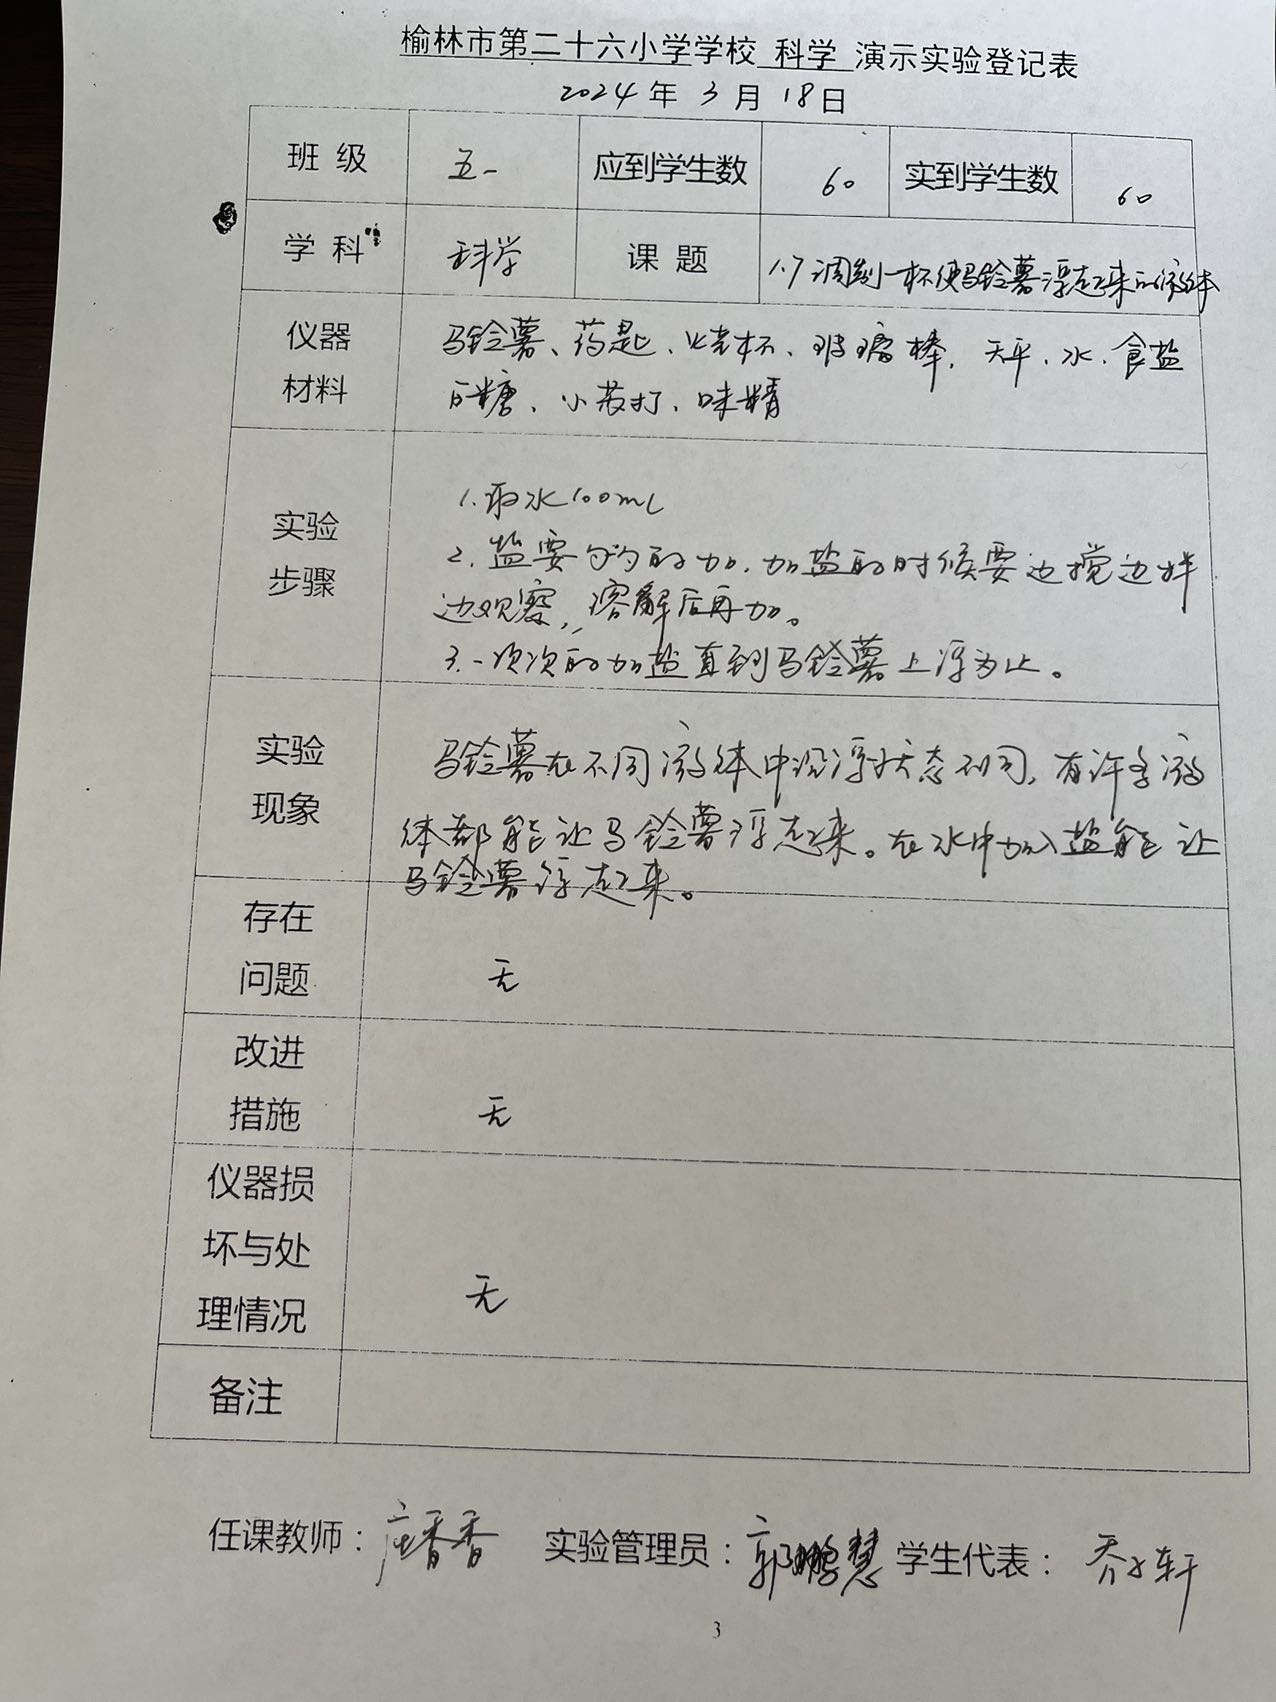 榆林市第二十六小学学校 科学 演示实验登记表
2024年 3月 18日
班 级 五一 应到学生数 60 实到学生数 60
学 科 科学 课 题 1.7调制一杯使马铃薯浮起来的液体
仪器
材料
马铃薯、药匙、烧杯、玻璃棒、天平、水、食盐
白糖、小苏打、味精
实验
步骤
1.取水100mL
2.盐要匀匀的加,加盐的时候要边搅边拌
边观察,溶解后再加。
3.一次次的加盐直到马铃薯上浮为止。
实验
现象
马铃薯在不同液体中沉浮状态不同,有许多液
体都能让马铃薯浮起来。在水中加入盐能让
马铃薯浮起来。
存在
问题
无
改进
措施
无
仪器损
坏与处
理情况
无
备注
任课教师: 香香 实验管理员: 郭鹏慧 学生代表: 乔子轩
3